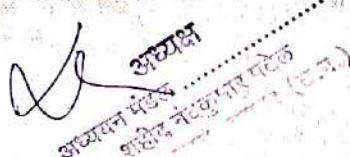 अध्यक्ष
अध्ययन मंडल ....................
शहीद नंदकुमार पटेल
(छ.ग.)